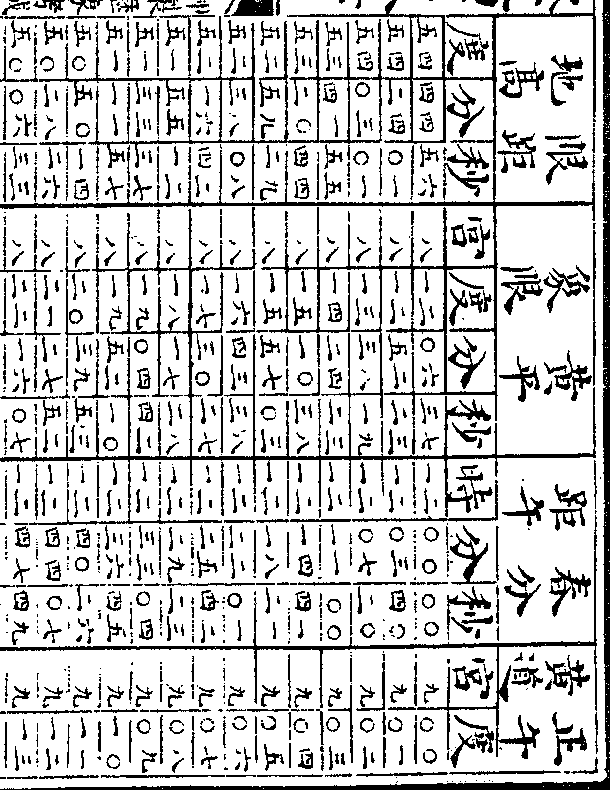 限距地高 黃平象限 春分距午 正午黃道
度 分 秒 宮 度 分 秒 時 分 秒 宮 度
五四 四四 五六 八 一二 〇六 三七 一二 〇〇 〇〇 九 〇〇
五四 二四 〇一 八 一二 五二 二三 一二 〇三 四〇 九 〇一
五四 〇三 〇一 八 一三 三八 一九 一二 〇七 二〇 九 〇二
五三 四一 五五 八 一四 二四 二三 一二 一一 〇〇 九 〇三
五三 二〇 四四 八 一五 一〇 三八 一二 一四 四一 九 〇四
五二 五九 二九 八 一五 五七 〇三 一二 一八 二一 九 〇五
五二 三八 〇八 八 一六 四三 三八 一二 二二 〇一 九 〇六
五二 一六 四二 八 一七 三〇 二七 一二 二五 四二 九 〇七
五一 五五 一二 八 一八 一七 二八 一二 二九 二三 九 〇八
五一 三三 三七 八 一九 〇四 四二 一二 三三 〇四 九 〇九
五一 一一 五七 八 一九 五二 一〇 一二 三六 四五 九 一〇
五〇 五〇 一四 八 二〇 三九 五三 一二 四〇 二六 九 一一
五〇 二八 二六 八 二一 二七 五二 一二 四四 〇七 九 一二
五〇 〇六 三三 八 二二 一六 〇七 一二 四七 四九 九 一三